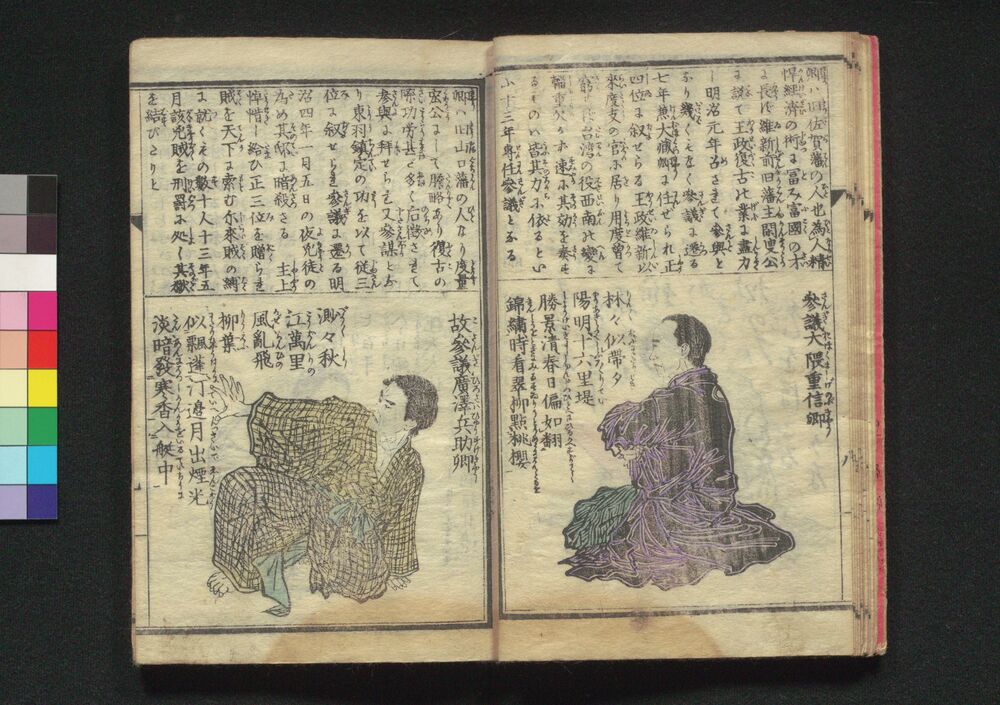 卿ハ旧佐賀藩の人也為人精
悍經濟の術に冨み富國の木
を長ず維新前旧藩主閑叟公
に説て王政復古の業に盡力
し明治元年召されて參與と
なり幾くもなく參議に遷る
七年無大藏卿に任せられ正
四位に叙せらる王政維新以
來度支の官に居り用度曽て
窮せず台湾の役西南の變に
輜重欠かず速に其功を奏せ
るものハ皆其力に依るとい
ふ十三年専任參議となる
參議大隈重信卿
林々似帶夕
陽明十六里堤
勝景清春日偏如翻
錦繍時看翠柳點桃櫻
卿ハ旧山口藩の人なり度量
宏公にして膽略あり復古の
際功労甚だ多く后徴されて
參與に拜せられ又參謀とな
り東羽鎮定の功を以て從三
位に叙せられ參議に遷る明
治四年一月五日の夜兇徒の
為め其邸に暗殺さる　主上
悼惜し給ひ正三位を贈られ
賊を天下に索む尓来賊の縛
に就くもの数十人十三年五
月該兇賊を刑罰に処し其獄
を結びたりと
故參議廣澤兵助卿
測々秋
江萬里
風亂飛
柳葉
似飄蓬汀邉月出煙光
淡暗發寒香入艇中